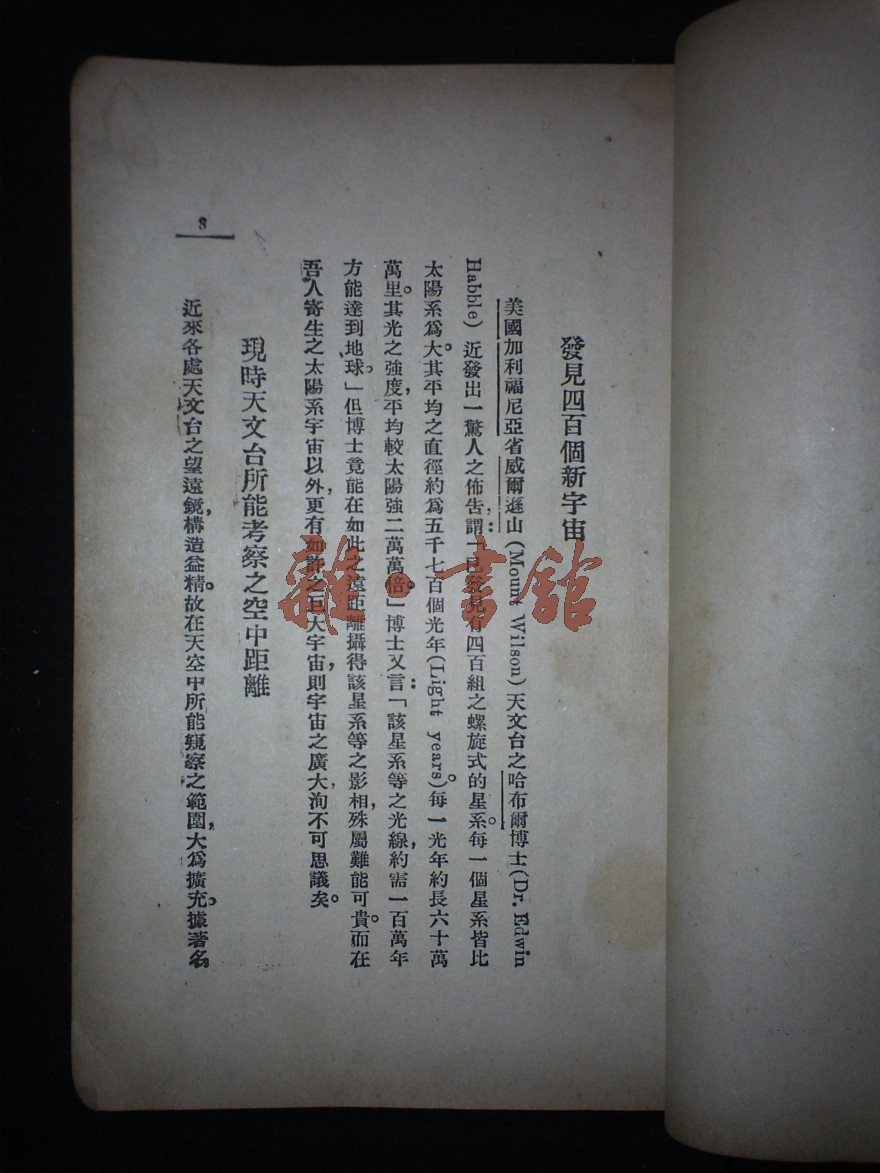 發見四百個新宇宙
美國加利福尼亞省威爾遜山(Mount Wilson)天文台之哈布爾博士(Dr. Edwin
Habble)近發出一驚人之佈告,謂:「已發見有四百組之螺旋式的星系。每一個星系皆比
太陽系爲大。其平均之直徑約爲五千七百個光年(Light years)。每一光年約長六十萬
萬里。其光之強度,平均較太陽強二萬萬倍。」博士又言:「該星系等之光線,約需一百萬年
方能達到地球。」但博士竟能在如此之遠距離攝得該星系等之影相,殊屬難能可貴。而在
吾人寄生之太陽系宇宙以外,更有如許之巨大宇宙,則宇宙之廣大,洵不可思議矣。
現時天文台所能考察之空中距離
近來各處天文台之望遠鏡,構造益精。故在天空中所能窺察之範圍,大爲擴充。據著名
3
雜·書館